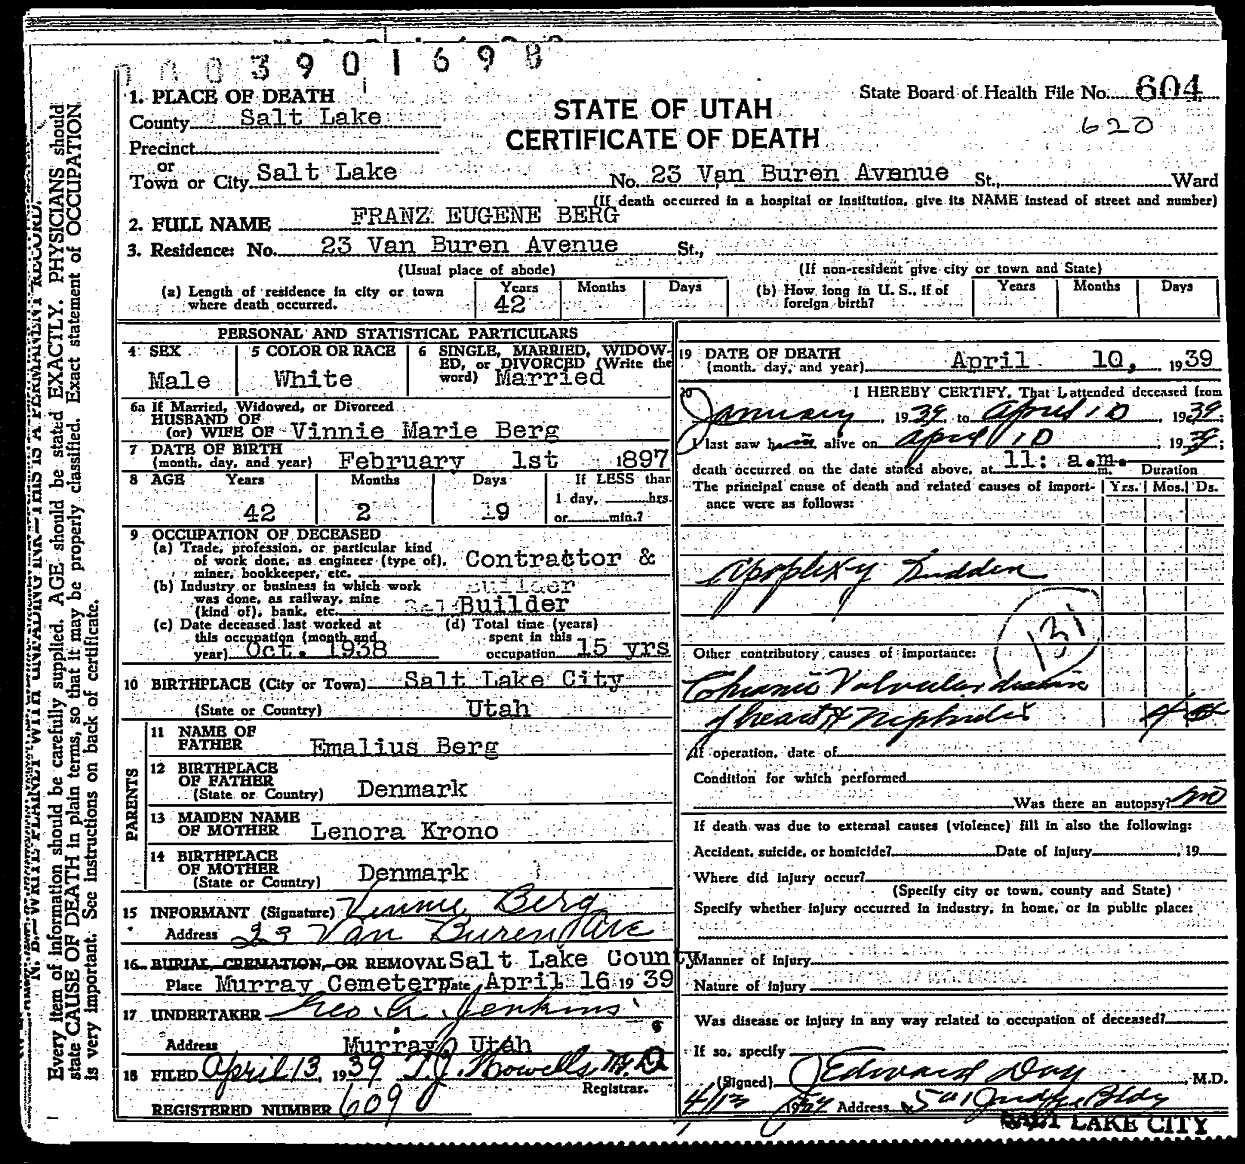 390169
1. PLACE OF DEATH
County Salt Lake
Precinct
or
Town or City Salt Lake
STATE OF UTAH
CERTIFICATE OF DEATH
State Board of Health File No. 604
620
No. 23 Van Buren Avenue St., Ward
(If death occurred in a hospital or institution, give its NAME instead of street and number)
2. FULL NAME FRANZ EUGENE BERG
3. Residence: No. 23 Van Buren Avenue St.,
(Usual place of abode) (If non-resident give city or town and State)
(a) Length of residence in city or town where death occurred. Years 42 Months Days
(b) How long in U. S., if of foreign birth? Years Months Days
PERSONAL AND STATISTICAL PARTICULARS
4 SEX Male
5 COLOR OR RACE White
6 SINGLE, MARRIED, WIDOWED, or DIVORCED (Write the word) Married
6a If Married, Widowed, or Divorced
HUSBAND OF
(or) WIFE OF Vinnie Marie Berg
7 DATE OF BIRTH
(month, day, and year) February 1st 1897
8 AGE Years 42 Months 2 Days 9 If LESS than 1 day, hrs. or min.?
9 OCCUPATION OF DECEASED
(a) Trade, profession, or particular kind of work done, as engineer (type of), miner, bookkeeper, etc. Contractor & Builder
(b) Industry or business in which work was done, as railway, mine (kind of), bank, etc. Builder
(c) Date deceased last worked at this occupation (month and year) Oct. 1938
(d) Total time (years) spent in this occupation 15 yrs
10 BIRTHPLACE (City or Town) Salt Lake City
(State or Country) Utah
PARENTS
11 NAME OF FATHER Emalius Berg
12 BIRTHPLACE OF FATHER
(State or Country) Denmark
13 MAIDEN NAME OF MOTHER Lenora Krono
14 BIRTHPLACE OF MOTHER
(State or Country) Denmark
15 INFORMANT (Signature) Vinnie Berg
Address 23 Van Buren Ave
16 BURIAL, CREMATION, OR REMOVAL Salt Lake County
Place Murray Cemetery Date April 16 1939
17 UNDERTAKER Geo. A. Jenkins
Address Murray Utah
18 FILED April 13, 1939 T.J. Howells, M.D.
Registrar.
REGISTERED NUMBER 609
19 DATE OF DEATH
(month, day, and year) April 10, 1939
20 I HEREBY CERTIFY, That I attended deceased from
January, 1939 to April 10, 1939.
I last saw him alive on April 10, 1939;
death occurred on the date stated above, at 11: a.m. Duration
The principal cause of death and related causes of importance were as follows: Yrs. Mos. Ds.
Apoplexy Sudden
131
Other contributory causes of importance:
Chronic Valvular disease
of heart & Nephritis 4
If operation, date of
Condition for which performed
Was there an autopsy? no
If death was due to external causes (violence) fill in also the following:
Accident, suicide, or homicide? Date of injury , 19
Where did injury occur?
(Specify city or town, county and State)
Specify whether injury occurred in industry, in home, or in public place:
Manner of Injury
Nature of injury
Was disease or injury in any way related to occupation of deceased?
If so, specify
(Signed) J Edward Day, M.D.
4/13 1939 Address 501 Judge Bldg
SALT LAKE CITY
N. B.—WRITE PLAINLY WITH UNFADING INK—THIS IS A PERMANENT RECORD.
Every item of information should be carefully supplied. AGE should be stated EXACTLY. PHYSICIANS should
state CAUSE OF DEATH in plain terms, so that it may be properly classified. Exact statement of OCCUPATION
is very important. See instructions on back of certificate.